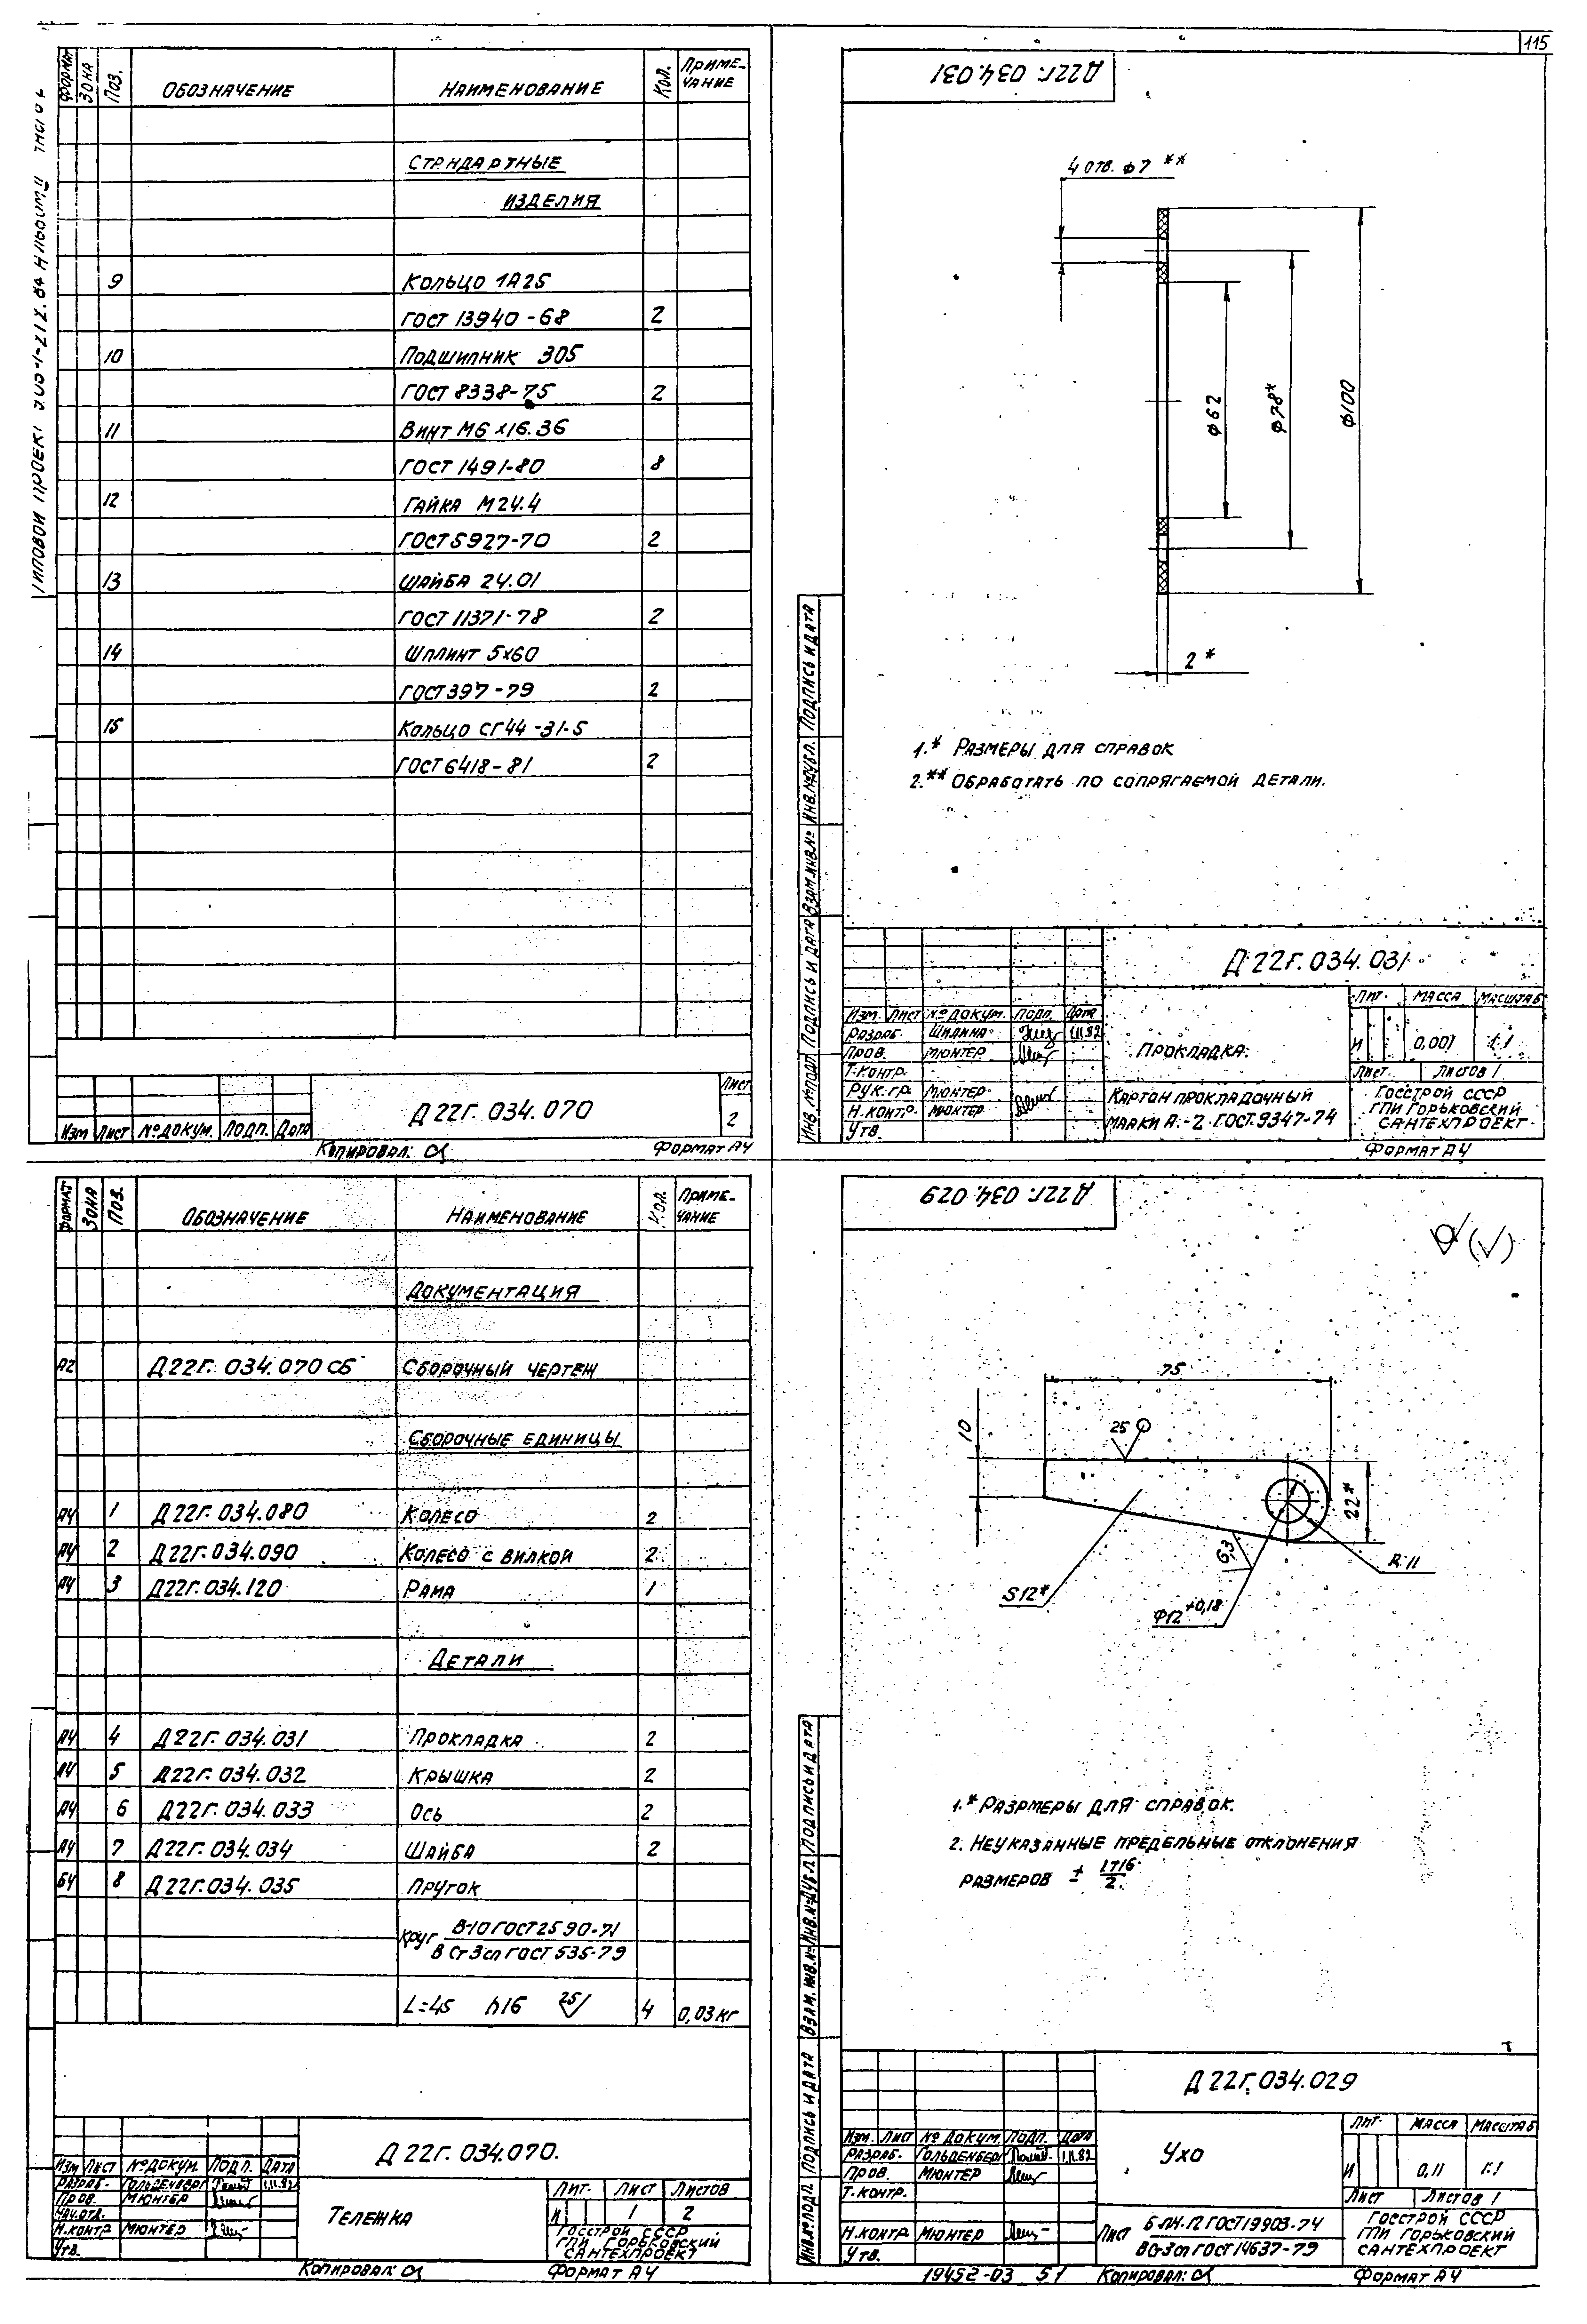 115
ФОРМАТ ЗОНА ПОЗ. ОБОЗНАЧЕНИЕ НАИМЕНОВАНИЕ КОЛ. ПРИМЕ-ЧАНИЕ
СТАНДАРТНЫЕ
ИЗДЕЛИЯ
9 КОЛЬЦО 1А25
ГОСТ 13940-68 2
10 ПОДШИПНИК 305
ГОСТ 8338-75 2
11 ВИНТ М6×16.36
ГОСТ 1491-80 8
12 ГАЙКА М24.4
ГОСТ 5927-70 2
13 ШАЙБА 24.01
ГОСТ 11371-78 2
14 ШПЛИНТ 5×60
ГОСТ 397-79 2
15 КОЛЬЦО СГ 44-31-5
ГОСТ 6418-81 2
Д22Г.034.070
ЛИСТ
2
ИЗМ ЛИСТ № ДОКУМ. ПОДП. ДАТА
КОПИРОВАЛ: ФОРМАТ А4
Д22Г.034.031
4 ОТВ. ф7 **
ф62
ф78*
ф100
2 *
1.* РАЗМЕРЫ ДЛЯ СПРАВОК
2.** ОБРАБОТАТЬ ПО СОПРЯГАЕМОЙ ДЕТАЛИ.
ИНВ. № ПОДП. ПОДПИСЬ И ДАТА ВЗАМ. ИНВ. № ИНВ. № ДУБЛ. ПОДПИСЬ И ДАТА
Д22Г.034.031
ЛИТ. МАССА МАСШТАБ
ИЗМ. ЛИСТ № ДОКУМ. ПОДП. ДАТА
РАЗРАБ. ШИДИНА 1.11.82
ПРОВ. МЮНТЕР
ПРОКЛАДКА
И 0,007 1:1
Т.КОНТР.
ЛИСТ ЛИСТОВ 1
РУК. ГР. МЮНТЕР
Н.КОНТР. МЮНТЕР
УТВ.
КАРТОН ПРОКЛАДОЧНЫЙ
МАРКИ А-2 ГОСТ 9347-74
ГОССТРОЙ СССР
ГПИ ГОРЬКОВСКИЙ
САНТЕХПРОЕКТ
ФОРМАТ А4
ФОРМАТ ЗОНА ПОЗ. ОБОЗНАЧЕНИЕ НАИМЕНОВАНИЕ КОЛ. ПРИМЕ-ЧАНИЕ
ДОКУМЕНТАЦИЯ
А2 Д22Г.034.070 СБ СБОРОЧНЫЙ ЧЕРТЕЖ
СБОРОЧНЫЕ ЕДИНИЦЫ
А4 1 Д22Г.034.080 КОЛЕСО 2
А4 2 Д22Г.034.090 КОЛЕСО С ВИЛКОЙ 2
А4 3 Д22Г.034.120 РАМА 1
ДЕТАЛИ
А4 4 Д22Г.034.031 ПРОКЛАДКА 2
А4 5 Д22Г.034.032 КРЫШКА 2
А4 6 Д22Г.034.033 ОСЬ 2
А4 7 Д22Г.034.034 ШАЙБА 2
БЧ 8 Д22Г.034.035 ПРУТОК
КРУГ В-10 ГОСТ 2590-71
В Ст 3сп ГОСТ 535-79
L=45 h16 25 4 0,03 КГ
Д22Г.034.070.
ИЗМ ЛИСТ № ДОКУМ. ПОДП. ДАТА
РАЗРАБ. ГОЛЬДЕНБЕРГ 1.11.82
ПРОВ. МЮНТЕР
НАЧ.ОТД.
Н.КОНТР МЮНТЕР
УТВ.
ТЕЛЕЖКА
ЛИТ. ЛИСТ ЛИСТОВ
И 1 2
ГОССТРОЙ СССР
ГПИ ГОРЬКОВСКИЙ
САНТЕХПРОЕКТ
КОПИРОВАЛ: ФОРМАТ А4
Д22Г.034.029
75
10
25
22*
6,3
R11
S12*
ф12 +0,18
1.* РАЗРМЕРЫ ДЛЯ СПРАВОК.
2. НЕУКАЗАННЫЕ ПРЕДЕЛЬНЫЕ ОТКЛОНЕНИЯ
РАЗМЕРОВ ± IT16/2.
ИНВ. № ПОДП. ПОДПИСЬ И ДАТА ВЗАМ. ИНВ. № ИНВ. № ДУБЛ. ПОДПИСЬ И ДАТА
Д22Г.034.029
ЛИТ. МАССА МАСШТАБ
ИЗМ. ЛИСТ № ДОКУМ. ПОДП. ДАТА
РАЗРАБ. ГОЛЬДЕНБЕРГ 1.11.82
ПРОВ. МЮНТЕР
Т.КОНТР.
УХО
И 0,11 1:1
ЛИСТ ЛИСТОВ 1
Н.КОНТР МЮНТЕР
УТВ.
ЛИСТ Б-ПН-12 ГОСТ 19903-74
В Ст 3сп ГОСТ 14637-79
ГОССТРОЙ СССР
ГПИ ГОРЬКОВСКИЙ
САНТЕХПРОЕКТ
19452-03 51 КОПИРОВАЛ: ФОРМАТ А4